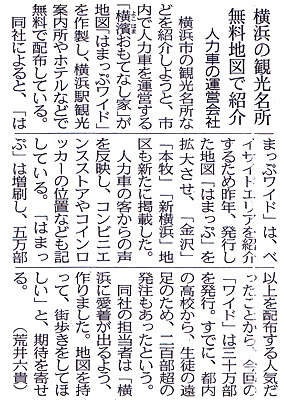 横浜の観光名所
無料地図で紹介
人力車の運営会社
横浜市の観光名所な
どを紹介しようと、市
内で人力車を運営する
「横濱おもてなし家」が
よこはま
地図「はまっぷワイド」
を作製し、横浜駅観光
案内所やホテルなどで
無料で配布している。
同社によると、「は
まっぷワイド」は、ベ
イサイドエリアを紹介
するため昨年、発行し
た地図「はまっぷ」を
拡大させ、「金沢」
「本牧」「新横浜」地
区も新たに掲載した。
人力車の客からの声
を反映し、コンビニエ
ンスストアやコインロ
ッカーの位置なども記
している。「はまっ
ぷ」は増刷し、五万部
以上を配布する人気だ
ったことから、今回の
「ワイド」は三十万部
を発行。すでに、都内
の高校から、生徒の遠
足のため、二百部超の
発注もあったという。
同社の担当者は「横
浜に愛着が出るよう、
作りました。地図を持
って、街歩きをしてほ
しい」と、期待を寄せ
る。 (荒井六貴)